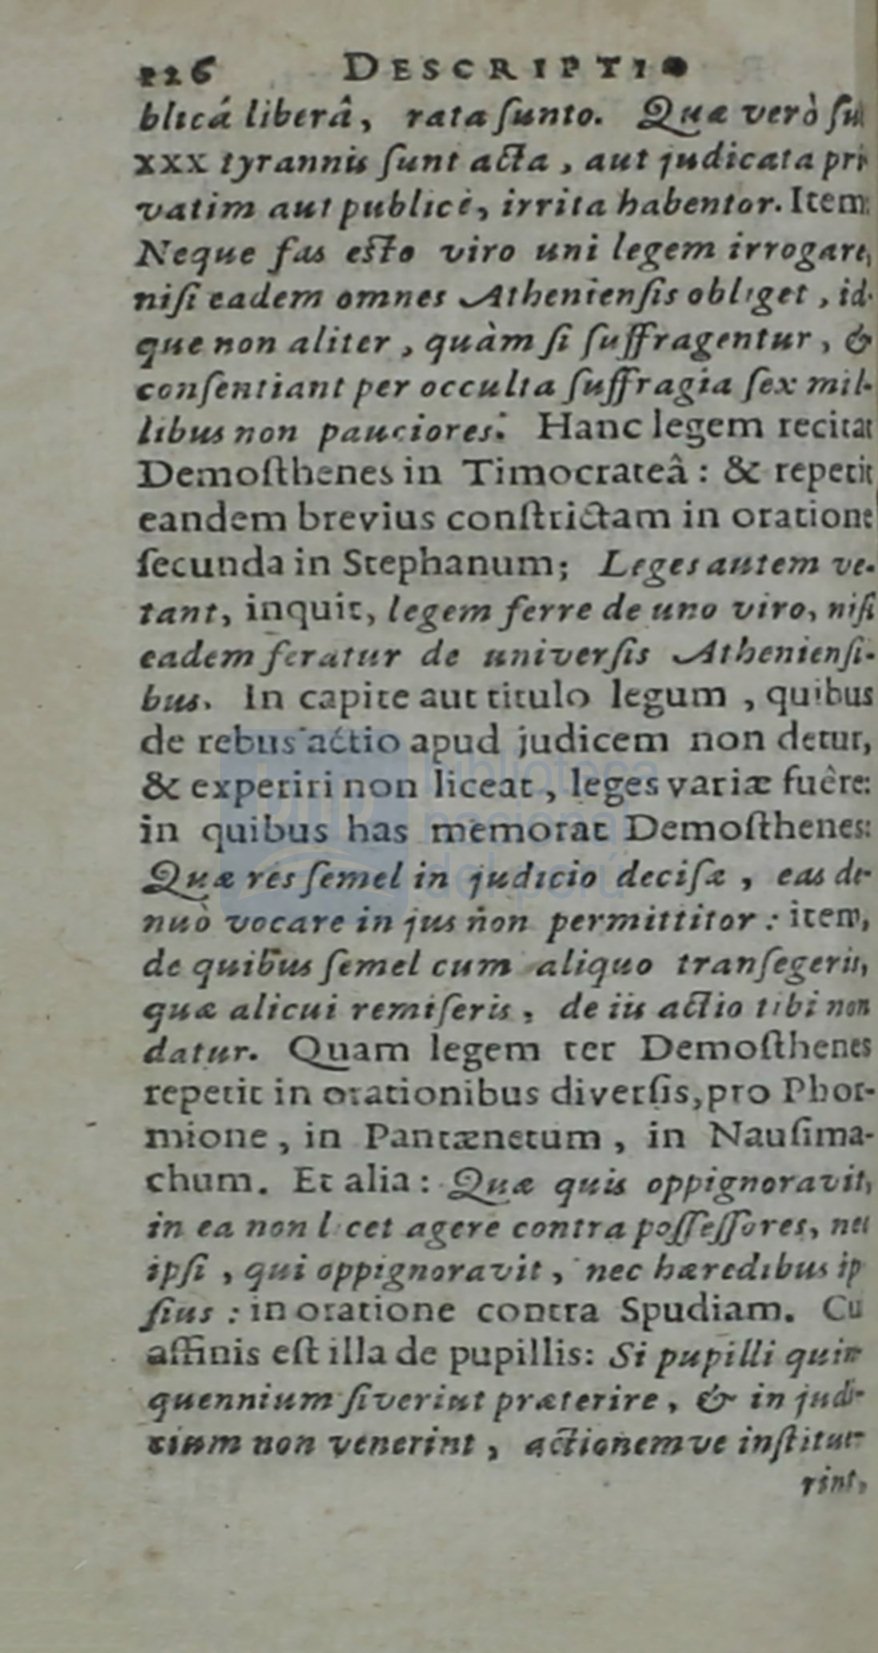 126 DESCRIPTIO
blicá liberâ, rata ſunto. Quæ verò ſu
XXX tyrannis ſunt acta, aut judicata pri
vatim aut publicè, irrita habentor. Item:
Neque fas eſto viro uni legem irrogare,
niſi eadem omnes Athenienſis obliget, id-
que non aliter, quàm ſi ſuffragentur, &
conſentiant per occulta ſuffragia ſex mil-
libus non pauciores. Hanc legem recitat
Demoſthenes in Timocrateâ: & repetit
eandem brevius conſtrictam in oratione
ſecunda in Stephanum; Leges autem ve-
tant, inquit, legem ferre de uno viro, niſi
eadem feratur de univerſis Athenienſi-
bus. In capite aut titulo legum, quibus
de rebus actio apud judicem non detur,
& experiri non liceat, leges variæ fuêre:
in quibus has memorat Demoſthenes:
Quæ res ſemel in judicio deciſæ, eas de-
nuò vocare in jus non permittitor: item,
de quibus ſemel cum aliquo tranſegeris,
quæ alicui remiſeris, de iis actio tibi non
datur. Quam legem ter Demoſthenes
repetit in orationibus diverſis, pro Phor-
mione, in Pantænetum, in Nauſima-
chum. Et alia: Quæ quis oppignoravit,
in ea non licet agere contra poſſeſſores, nec
ipſi, qui oppignoravit, nec hæredibus ip
ſius: in oratione contra Spudiam. Cu
affinis eſt illa de pupillis: Si pupilli quin
quennium ſiverint præterire, & in judi-
cium non venerint, actionemve inſtitue-
rint,
biblioteca
nacional
del perú